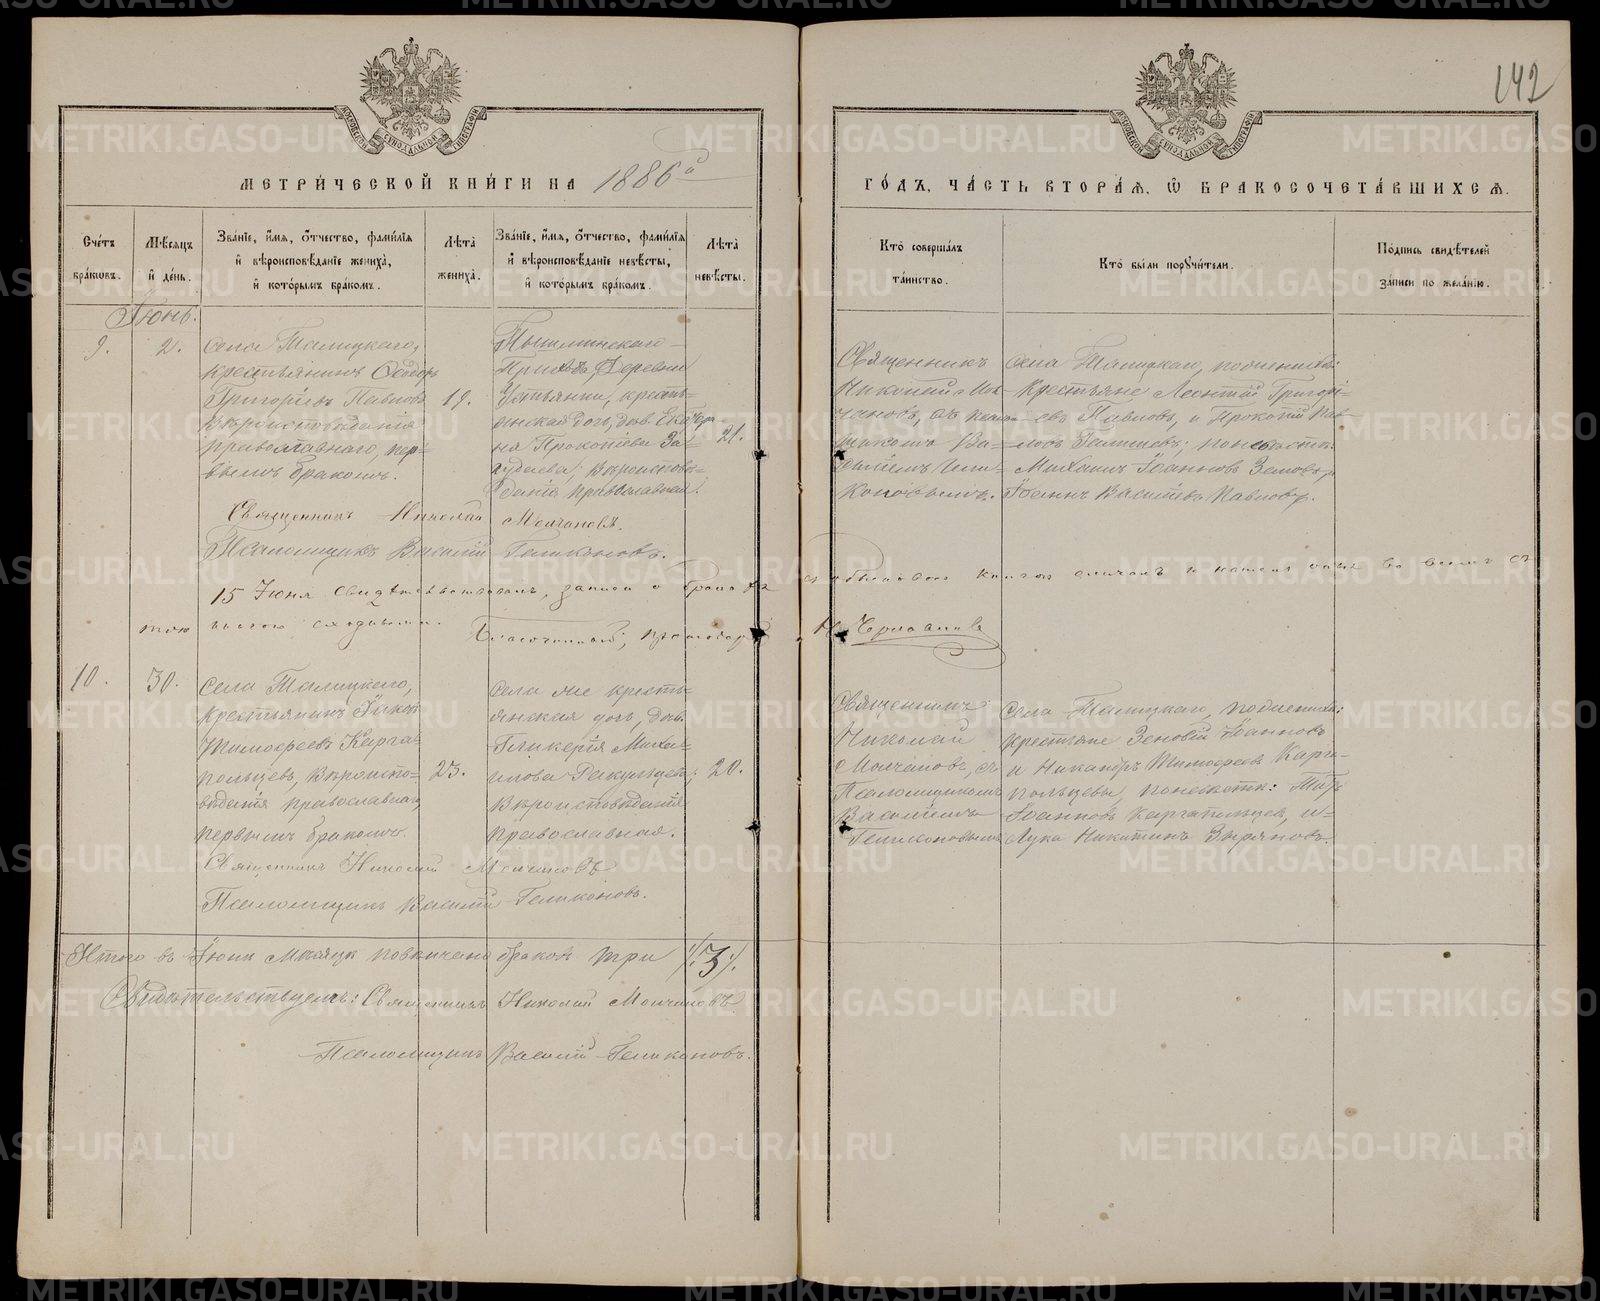 142
МОСКОВСКОЙ СѴНОДАЛЬНОЙ ТИПОГРАФІИ
МОСКОВСКОЙ СѴНОДАЛЬНОЙ ТИПОГРАФІИ
МЕТРИ́ЧЕСКОЙ КНИ́ГИ НА 1886й
ГО́ДЪ, ЧА́СТЬ ВТОРА́Ѧ, Ѡ҆ БРАКОСОЧЕТА́ВШИХСѦ.
Сче́тъ бра́кѡвъ.
Мѣ́сѧцъ и҆ де́нь.
Зва́нїе, и҆́мѧ, о҆́тчество, фами́лїѧ и҆ вѣроисповѣ́данїе жениха̀, и҆ кото́рымъ бра́комъ.
Лѣ́та жениха̀.
Зва́нїе, и҆́мѧ, о҆́тчество, фами́лїѧ и҆ вѣроисповѣ́данїе невѣ́сты, и҆ кото́рымъ бра́комъ.
Лѣ́та невѣ́сты.
Кто̀ соверша́лъ та́инство.
Кто̀ бы́ли порꙋчи́тели.
По́дпись свидѣ́телей за́писи по жела́нїю.
Іюнь.
9.
2.
Села Талицкаго,
крестьянинъ Ѳеодоръ
Григоріевъ Павловъ
вѣроисповѣданія
православнаго, пер-
вымъ бракомъ.
19.
Пышминскаго
Прихода, Деревни
Устьянки, кресть-
янская дочь, дѣв. Екатери-
на Прокопіева За-
вѣроисповѣ-
данія православная.
21.
Священникъ
Николай Мол-
чановъ, съ псало-
мщикомъ Ва-
силіемъ Гели-
коновымъ.
Села Талицкаго, по женихѣ:
Крестьяне Леонтій Григорі-
евъ Павловъ, и Прокопій Пав-
ловъ; по невѣстѣ:
Михаилъ Іоанновъ
Іоаннъ Васильевъ Павловъ.
Священникъ Николай Молчановъ.
Псаломщикъ Василій Геликоновъ.
15 Іюня свидѣтельствовалъ, записи о бракахъ
книгою сличалъ и нашелъ оныя во всемъ съ
тою книгою сходными.
Благочинный,
10.
30.
Села Талицкаго,
крестьянинъ Іаковъ
Тимофеевъ Карга-
польцевъ, вѣроиспо-
вѣданія православнаго,
первымъ бракомъ.
23.
Села же кресть-
янская дочь, дѣв.
Гликерія Михаи-
лова
вѣроисповѣданія
православная.
20.
Священникъ
Николай
Молчановъ, съ
Псаломщикомъ
Василіемъ
Геликоновымъ
Села Талицкаго, по женихѣ:
крестьяне Зеновій Іоанновъ
и Никаноръ Тимофеевъ Карга-
польцевы, по невѣстѣ: Титъ
Іоанновъ Каргапольцевъ, и
Лука Никитинъ Зыряновъ.
Священникъ Николай Молчановъ
Псаломщикъ Василій Геликоновъ.
Итого въ Іюнѣ Мѣсяцѣ повѣнчено браковъ три /:3:/.
Свидѣтельствуемъ: Священникъ Николай Молчановъ
Псаломщикъ Василій Геликоновъ.
METRIKI.GASO-URAL.RU